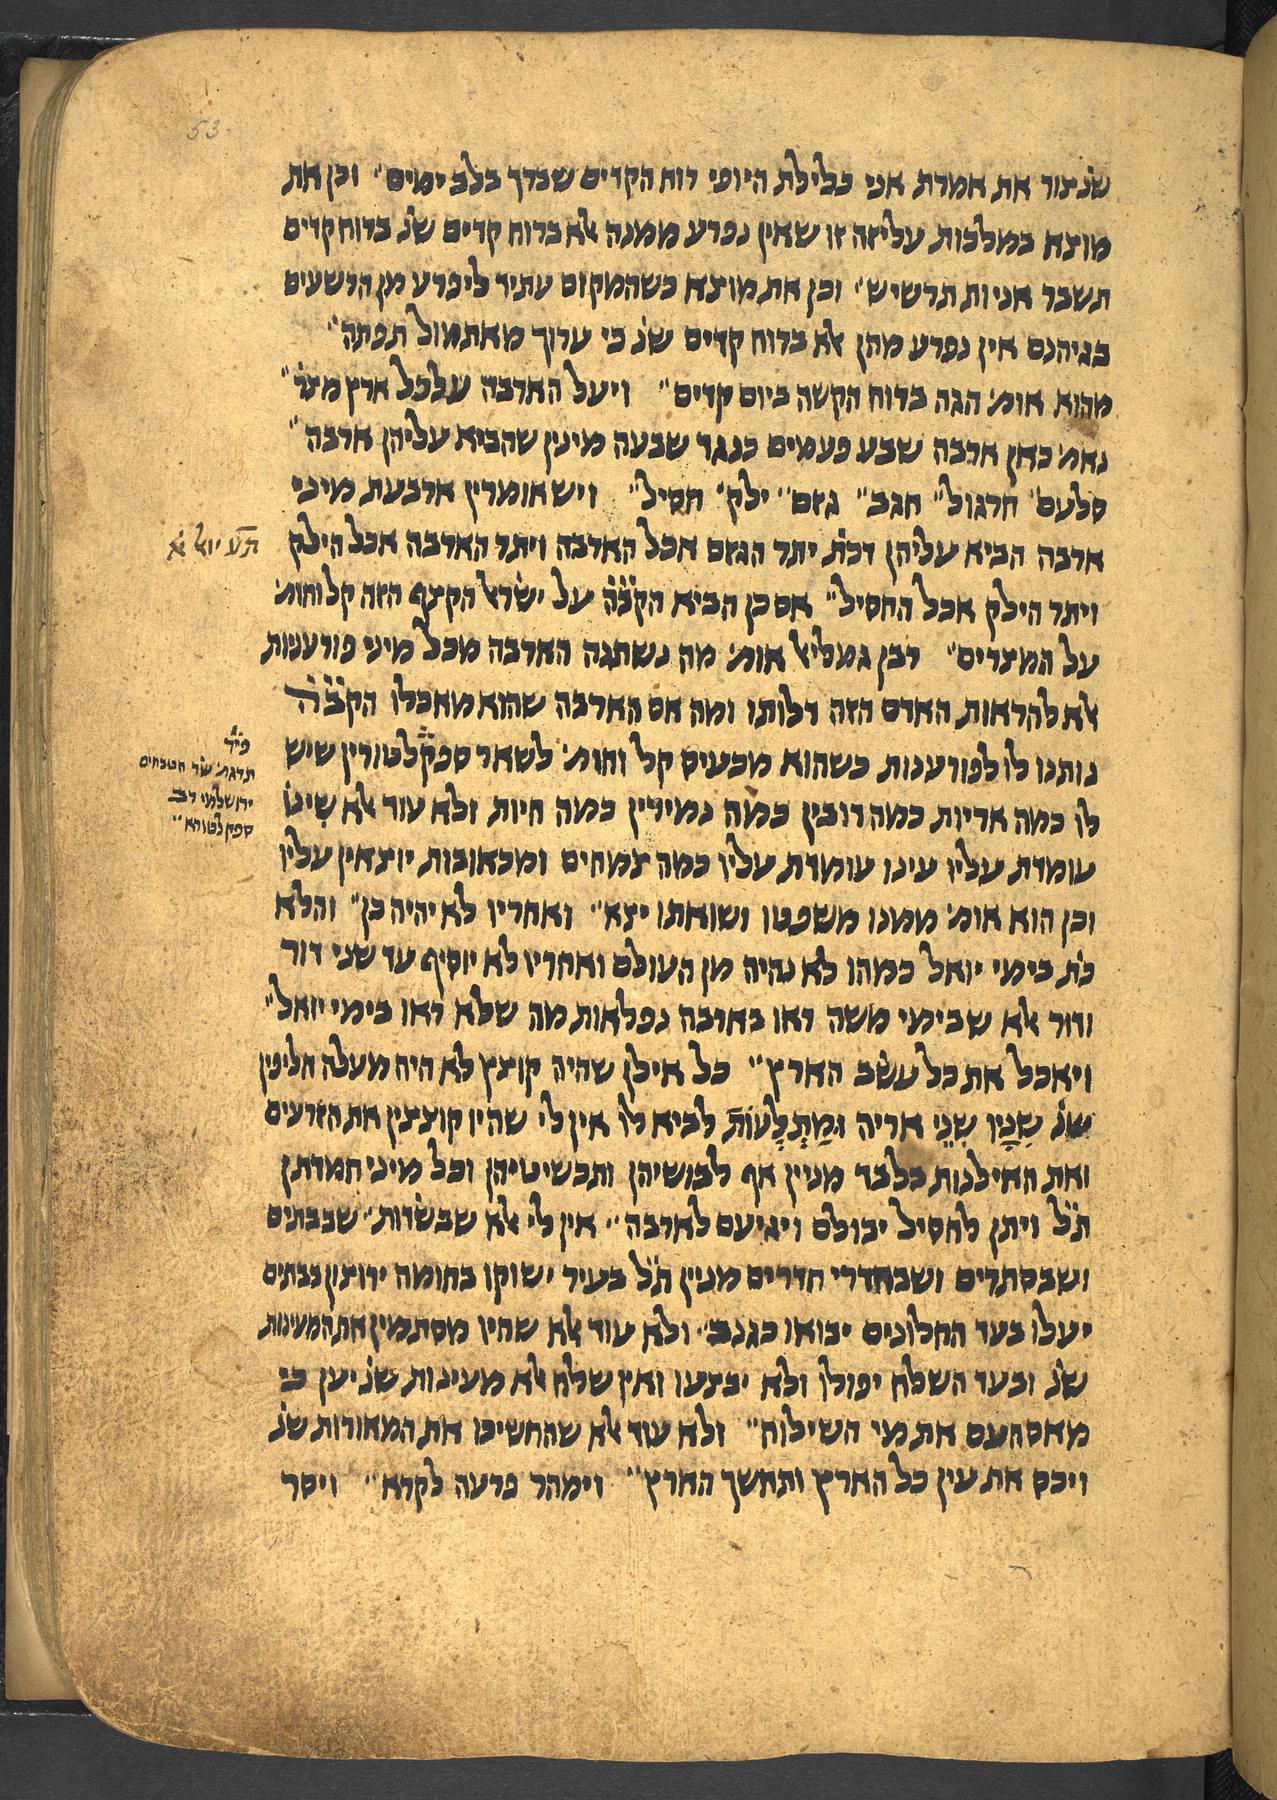 53
שנ׳ צור את אמרת אני כלילת היופי רוח הקדים שברך בלב ימים״ וכן את
מוצא במלכות עליזה זו שאין נפרע ממנה אלא ברוח קדים שנ׳ ברוח קדים
תשבר אניות תרשיש״ וכן את מוצא כשהמקום עתיד ליפרע מן הרשעים
בגיהנם אין נפרע מהן אלא ברוח קדים שנ׳ כי ערוך מאתמול תפתה״
מהוא אומ׳ הגה ברוח הקשה ביום קדים״ ויעל הארבה על כל ארץ מצר׳״
נאמ׳ כאן ארבה שבע פעמים כנגד שבעה מינין שהביא עליהן ארבה״
סלעם׳ חרגול״ חגב״ גזם״ ילק׳ חסיל״ ויש אומרין ארבעת מיני
ארבה הביא עליהן דכת׳ יתר הגזם אכל הארבה ויתר הארבה אכל הילק
תע יואל א
ויתר הילק אכל החסיל״ אם כן הביא הקב״ה על ישראל הקצף הזה קל וחומ׳
על המצרים״ רבן גמליאל אומ׳ מה נשתנה הארבה מכל מיני פורעניות
אלא להראות האדם הזה דלותו ומה אם הארבה שהוא מאכלו הקב״ה
נותנו לו לפורענות כשהוא מכעיס קל וחומ׳ לשאר ספקלטורין שיש
פי׳
תרגם שר הטבחים
ירושלמי רב
ספקלטוריא״
לו כמה אריות כמה דובין כמה נמירין כמה חיות ולא עוד אלא שינו
עומדת עליו עינו עומדת עליו כמה צמחים ומכאובות יוצאין עליו
וכן הוא אומ׳ ממנו משפטו ושואתו יצא״ ואחריו לא יהיה כן״ והלא
כת׳ בימי יואל כמהו לא נהיה מן העולם ואחריו לא יוסיף עד שני דור
ודור אלא שבימי משה ראו בארבה נפלאות מה שלא ראו בימי יואל״
ויאכל את כל עשב הארץ״ כל אילן שהיה קוצץ לא היה מעלה חליפין
שנ׳ שניו שני אריה ומתלעות לביא לו אין לי שהיו קוצצין את הזרעים
ואת האילנות בלבד מניין אף לבושיהן ותכשיטיהן וכל מיני חמדתן
ת״ל ויתן לחסיל יבולם ויגיעם לארבה״ אין לי אלא שבשדות״ שבבתים
ושבסתרים ושבחדרי חדרים מנין ת״ל בעיר ישוקו בחומה ירוצון בבתים
יעלו בעד החלונים יבואו כגנב״ ולא עוד אלא שהיו מסתמין את המעינות
שנ׳ ובעד השלח יפולו ולא יבצעו ואין שלח אלא מעינות שנ׳ יען כי
מאס העם את מי השילוח״ ולא עוד אלא שהחשיכו את המאורות שנ׳
ויכס את עין כל הארץ ותחשך הארץ״ וימהר פרעה לקרא״ ויסר